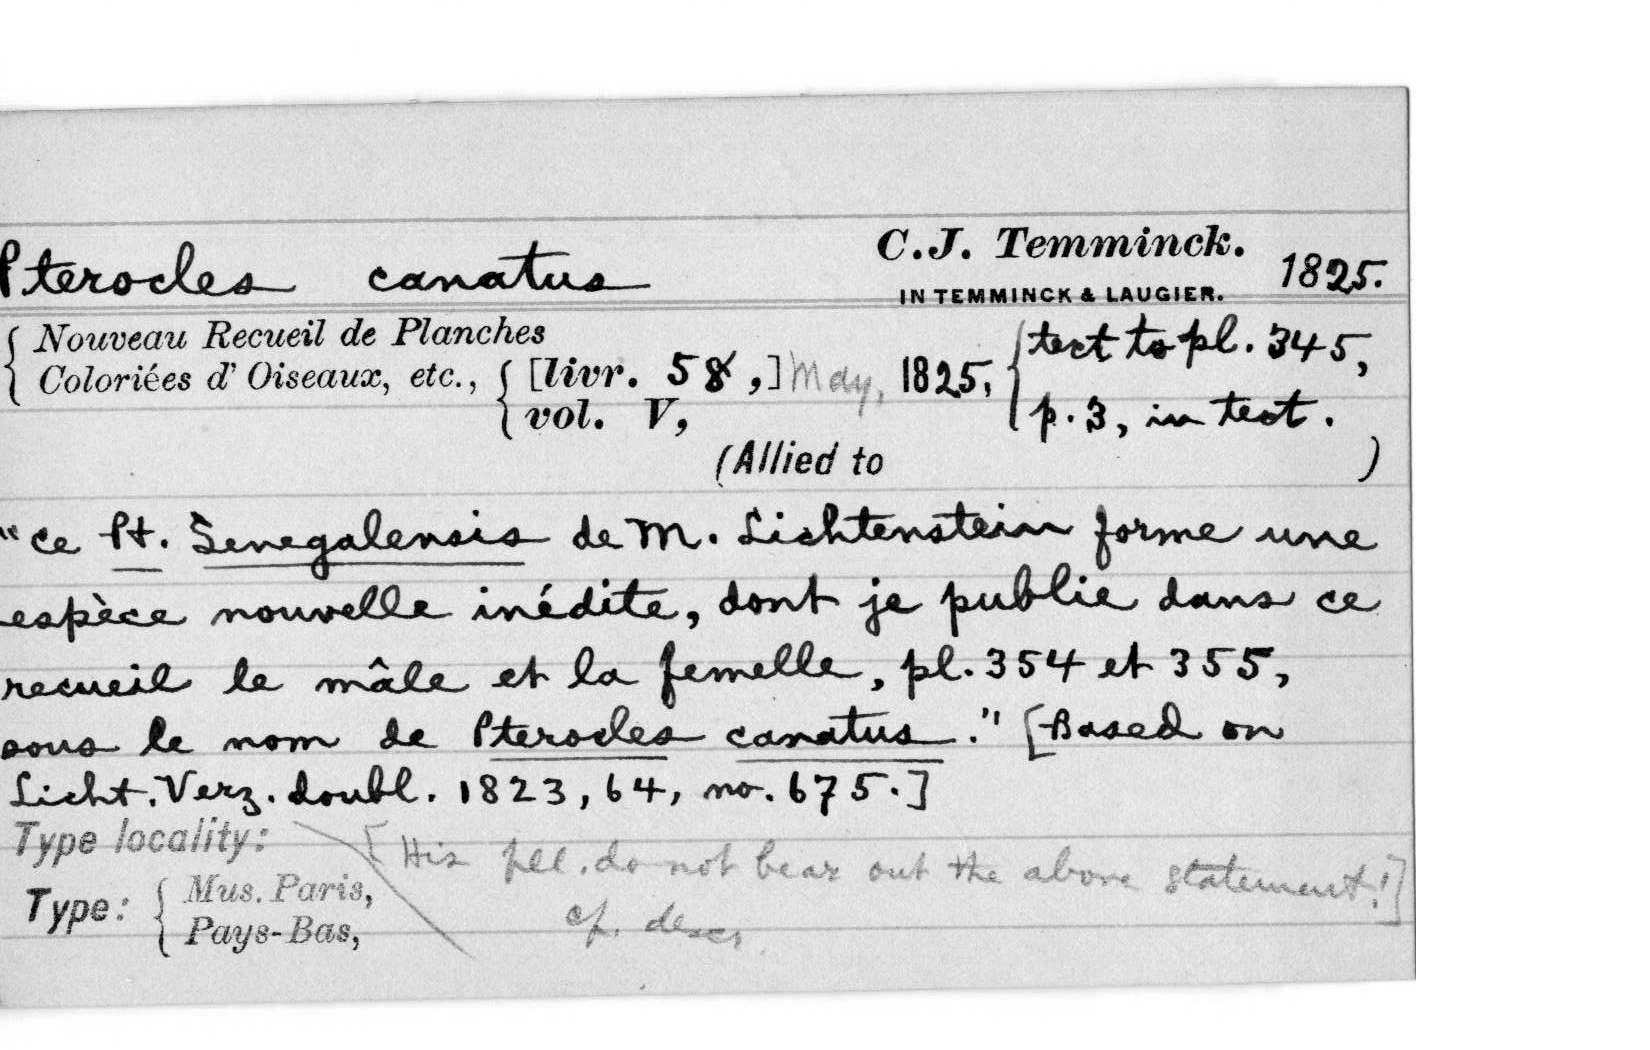 Pterocles canatus C.J. Temminck. 1825.
IN TEMMINCK & LAUGIER.
Nouveau Recueil de Planches
Coloriées d' Oiseaux, etc., [livr. 58,] May, 1825, text to pl. 345,
vol. V, p. 3, in text.
(Allied to )
"ce Pt. Senegalensis de M. Lichtenstein forme une
espèce nouvelle inédite, dont je publie dans ce
recueil le mâle et la femelle, pl. 354 et 355,
sous le nom de Pterocles canatus." [Based on
Licht. Verz. doubl. 1823, 64, no. 675.]
Type locality: [His pll. do not bear out the above statement!]
Type: Mus. Paris, cf. descr.
Pays-Bas,